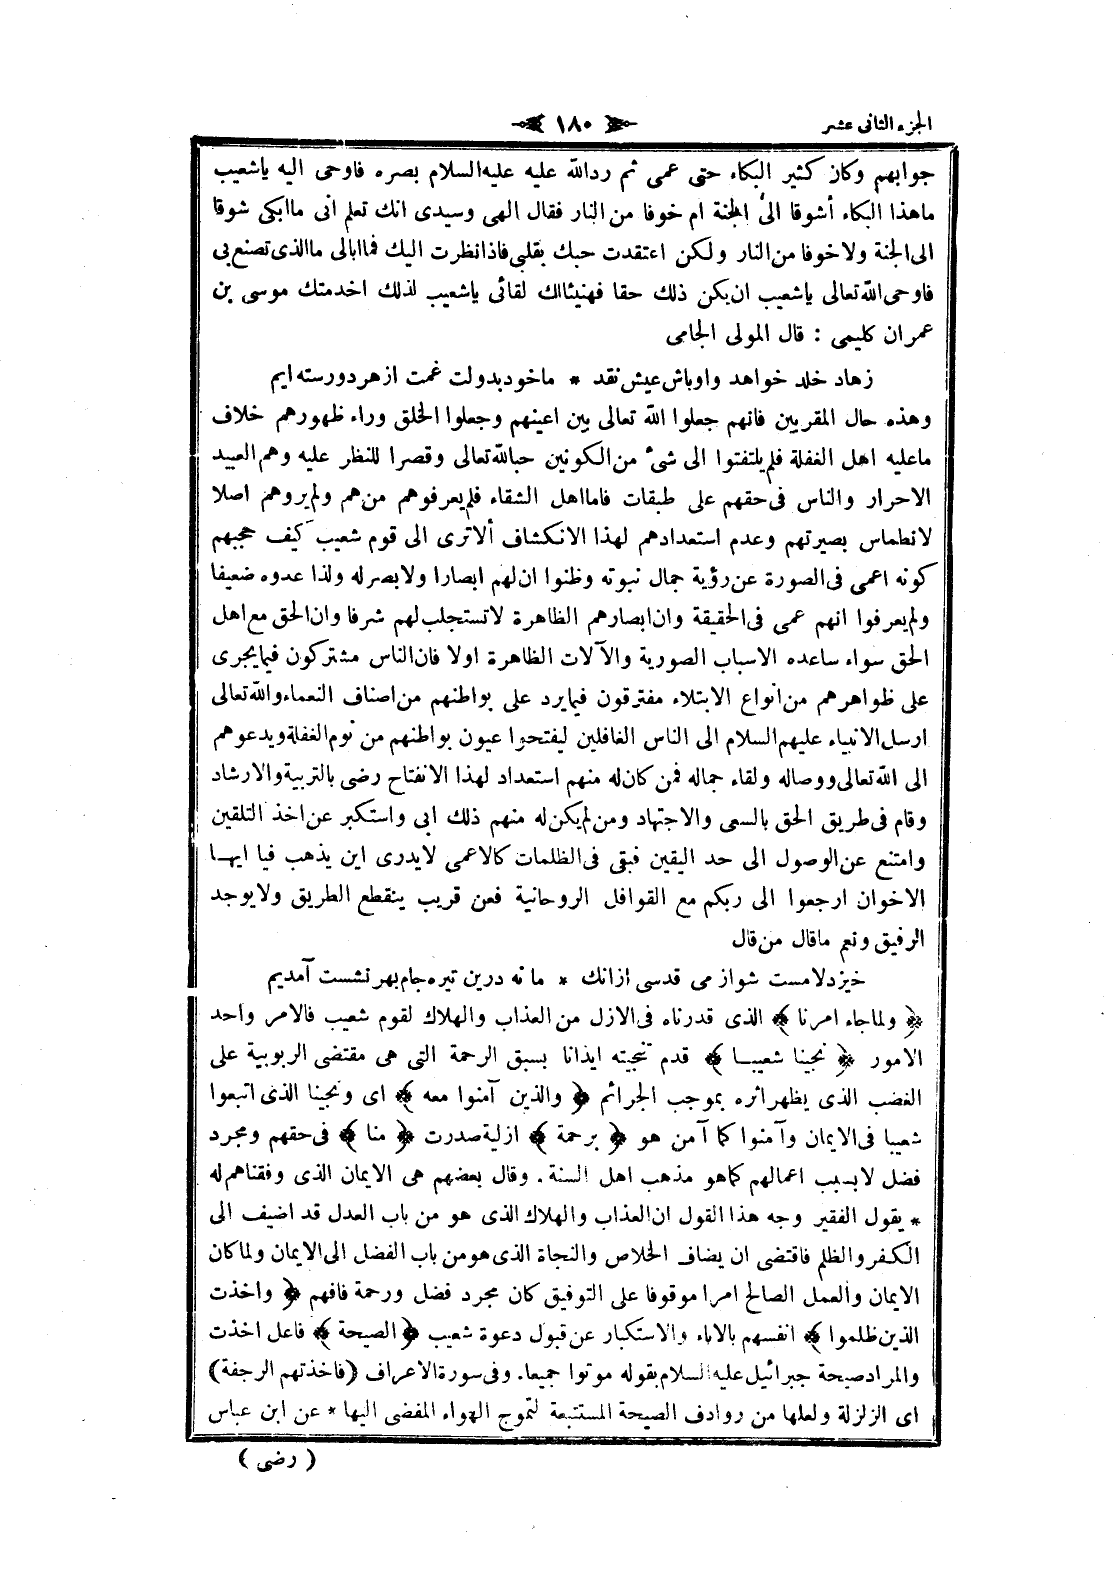 الجزء الثانى عشر ١٨٠
جوابهم وكان كثير البكاء حتى عمى ثم ردالله عليه عليه السلام بصره فاوحى اليه ياشعيب
ماهذا البكاء أشوقا الى الجنة ام خوفا من النار فقال الهى وسيدى انك تعلم انى ماابكى شوقا
الى الجنة ولاخوفا من النار ولكن اعتقدت حبك بقلبى فاذا نظرت اليك فماابالى ماالذى تصنع بى
فاوحى الله تعالى ياشعيب ان يكن ذلك حقا فهنيئالك لقائى ياشعيب لذلك اخدمتك موسى بن
عمران كليمى : قال المولى الجامى
زهاد خلد خواهد واوباش عيش نقد * ماخود بدولت غمت ازهردورسته ايم
وهذه حال المقربين فانهم جعلوا الله تعالى بين اعينهم وجعلوا الخلق وراء ظهورهم خلاف
ماعليه اهل الغفلة فلم يلتفتوا الى شىء من الكونين حبالله تعالى وقصرا للنظر عليه وهم العبيد
الاحرار والناس فى حقهم على طبقات فامااهل الشقاء فلم يعرفوهم من هم ولم يروهم اصلا
لانطماس بصيرتهم وعدم استعدادهم لهذا الانكشاف ألاترى الى قوم شعيب كيف حجبهم
كونه اعمى فى الصورة عن رؤية جمال نبوته وظنوا ان لهم ابصارا ولابصر له ولذا عدوه ضعيفا
ولم يعرفوا انهم عمى فى الحقيقة وان ابصارهم الظاهرة لاتستجلب لهم شرفا وان الحق مع اهل
الحق سواء ساعده الاسباب الصورية والآلات الظاهرة اولا فان الناس مشتركون فيما يجرى
على ظواهرهم من انواع الابتلاء مفترقون فيما يرد على بواطنهم من اصناف النعماء والله تعالى
ارسل الانبياء عليهم السلام الى الناس الغافلين ليفتحوا عيون بواطنهم من نوم الغفلة ويدعوهم
الى الله تعالى ووصاله ولقاء جماله فمن كان له منهم استعداد لهذا الانفتاح رضى بالتربية والارشاد
وقام فى طريق الحق بالسعى والاجتهاد ومن لم يكن له منهم ذلك ابى واستكبر عن اخذ التلقين
وامتنع عن الوصول الى حد اليقين فبقى فى الظلمات كالاعمى لايدرى اين يذهب فيا ايهــا
الاخوان ارجعوا الى ربكم مع القوافل الروحانية فعن قريب ينقطع الطريق ولايوجد
الرفيق ونعم ماقال من قال
خيزدلامست شواز مى قدسى ازانك * مانه درين تيره جام بهر نشست آمديم
﴿ ولما جاء امرنا ﴾ الذى قدرناه فى الازل من العذاب والهلاك لقوم شعيب فالامر واحد
الامور ﴿ نجينا شعيبــا ﴾ قدم تنجيته ايذانا بسبق الرحمة التى هى مقتضى الربوبية على
الغضب الذى يظهر اثره بموجب الجرائم ﴿ والذين آمنوا معه ﴾ اى ونجينا الذى اتبعوا
شعيبا فى الايمان وآمنوا كما آمن هو ﴿ برحمة ﴾ ازلية صدرت ﴿ منا ﴾ فى حقهم ومجرد
فضل لابسبب اعمالهم كماهو مذهب اهل السنة . وقال بعضهم هى الايمان الذى وفقناهم له
* يقول الفقير وجه هذا القول ان العذاب والهلاك الذى هو من باب العدل قد اضيف الى
الكفر والظلم فاقتضى ان يضاف الخلاص والنجاة الذى هو من باب الفضل الى الايمان ولما كان
الايمان والعمل الصالح امرا موقوفا على التوفيق كان مجرد فضل ورحمة فافهم ﴿ واخذت
الذين ظلموا ﴾ انفسهم بالاباء والاستكبار عن قبول دعوة شعيب ﴿ الصيحة ﴾ فاعل اخذت
والمراد صيحة جبرائيل عليه السلام بقوله موتوا جميعا. وفى سورة الاعراف (فاخذتهم الرجفة)
اى الزلزلة ولعلها من روادف الصيحة المستتبعة لتموج الهواء المفضى اليها * عن ابن عباس
( رضى )